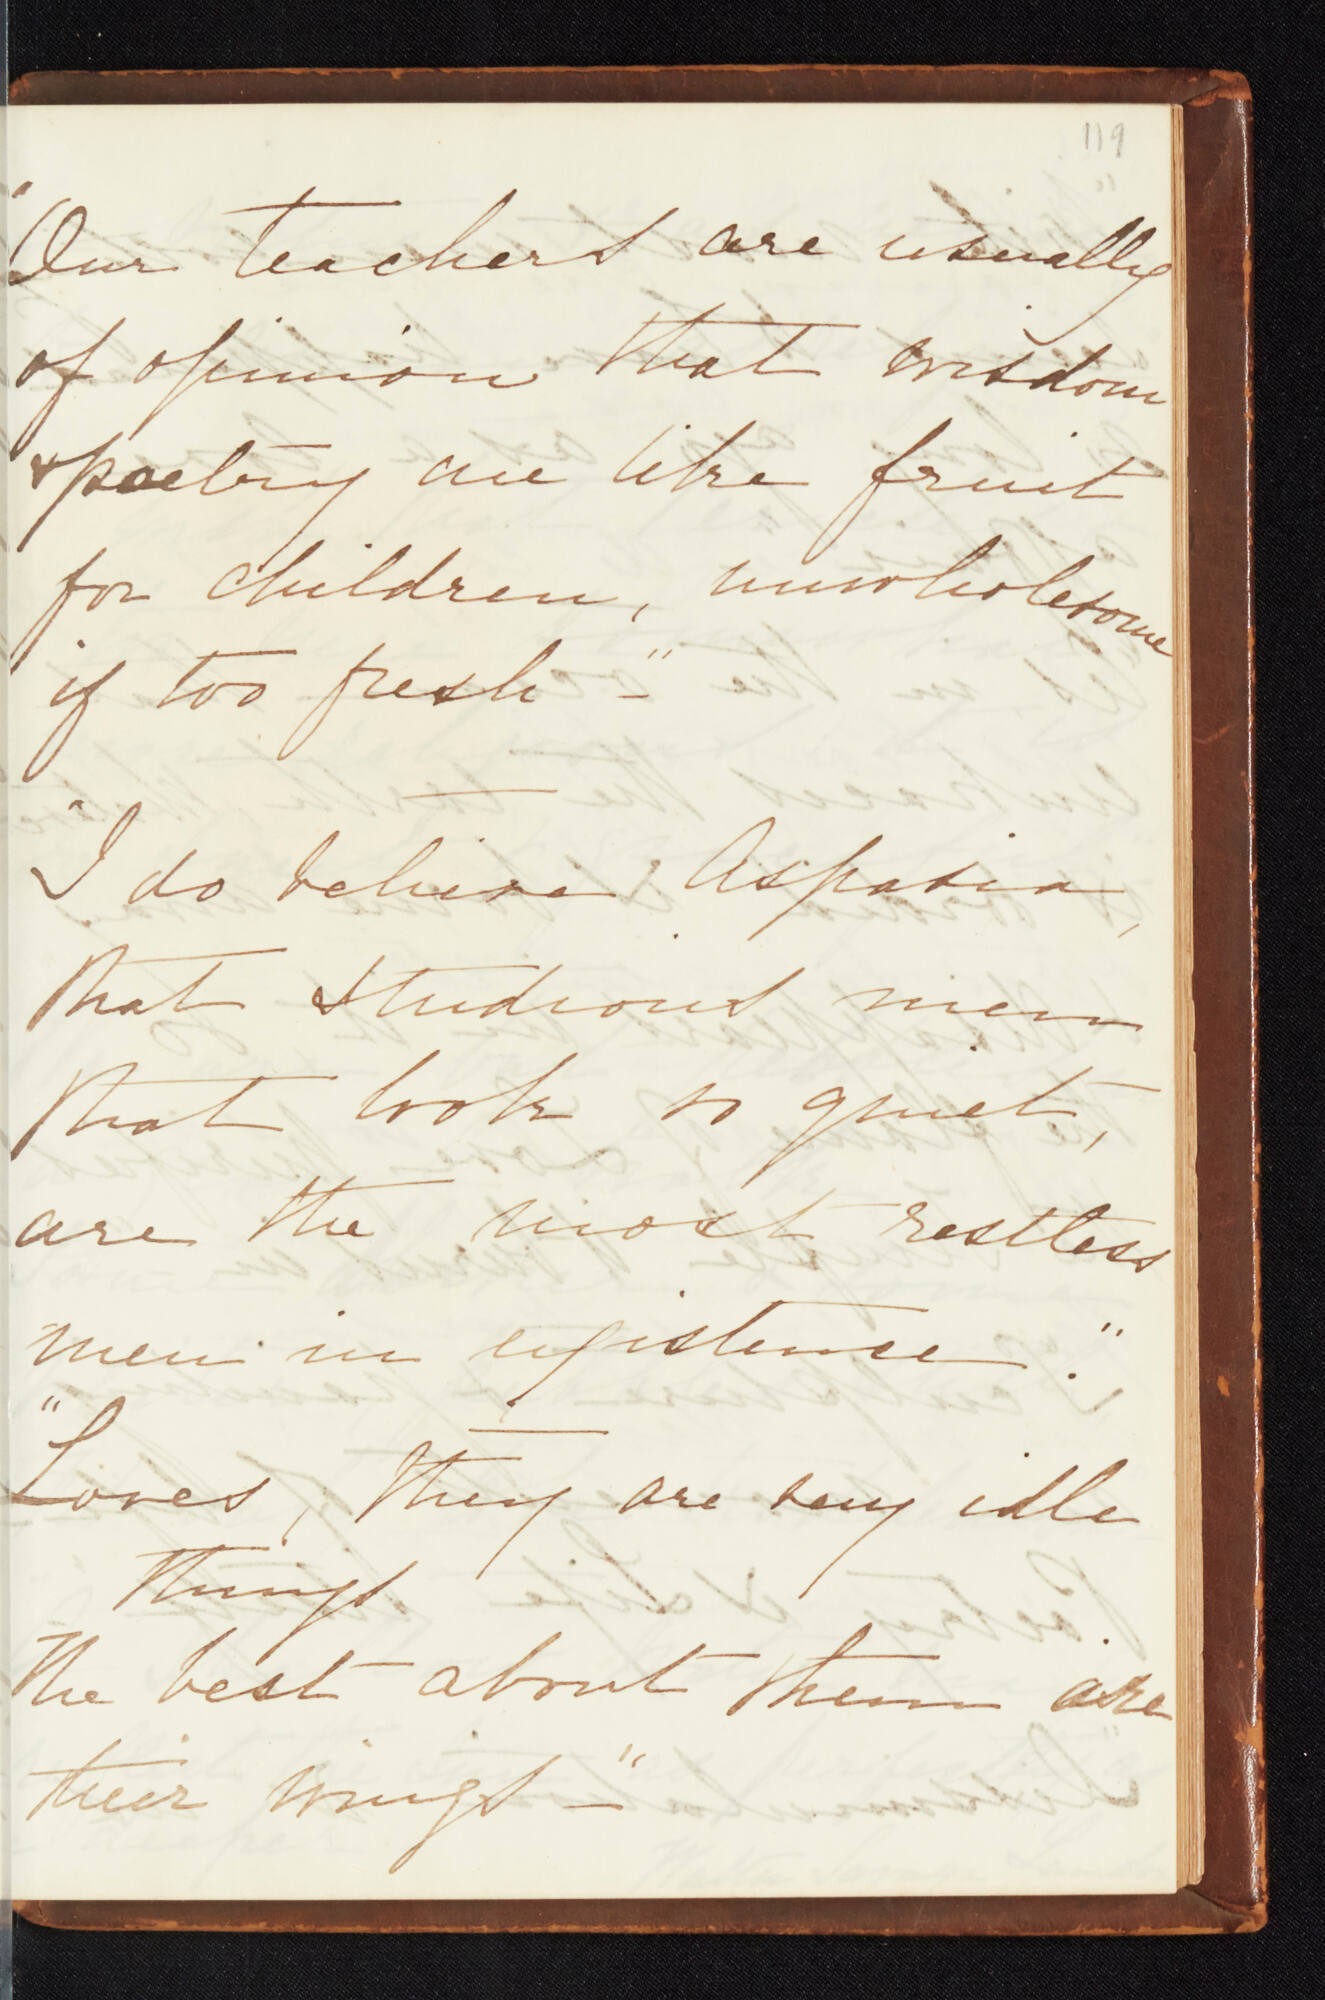 119
"Our teachers are usually
of opinion that wisdom
& poetry are like fruit
for children, unwholesome
if too fresh"-
"I do believe Aspasia,
that studious men
that look so quiet,
are the most restless
men in existence."
"Loves, they are very idle
things
The best about them are
their wings-"